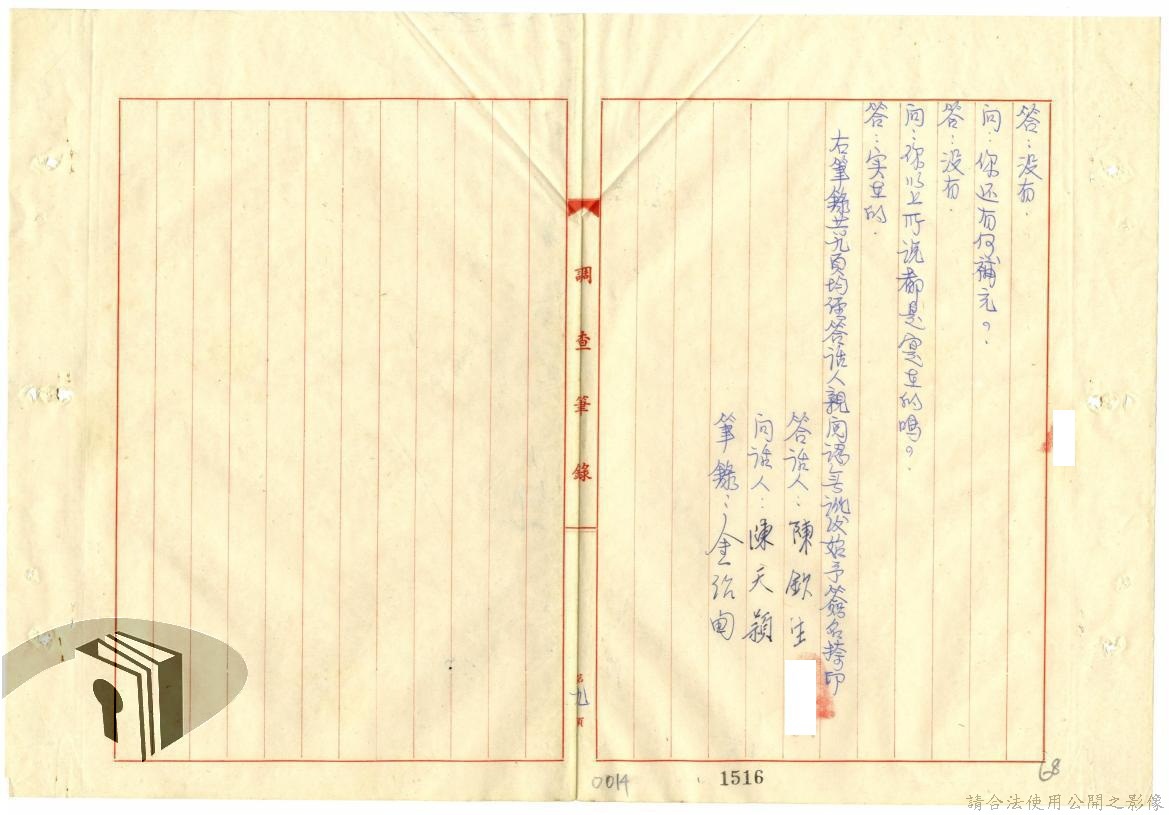 答：没有．
问：你还有何補充？．
答：没有．
问：你以上所说都是实在的嗎？．
答：实在的．
右筆錄共九頁均經答话人親閱認無訛後始予簽名捺印
答话人：陳欽生
问话人：陳天颖
筆錄：金绍甸
調查筆錄
第九頁
0014
1516
68
請合法使用公開之影像